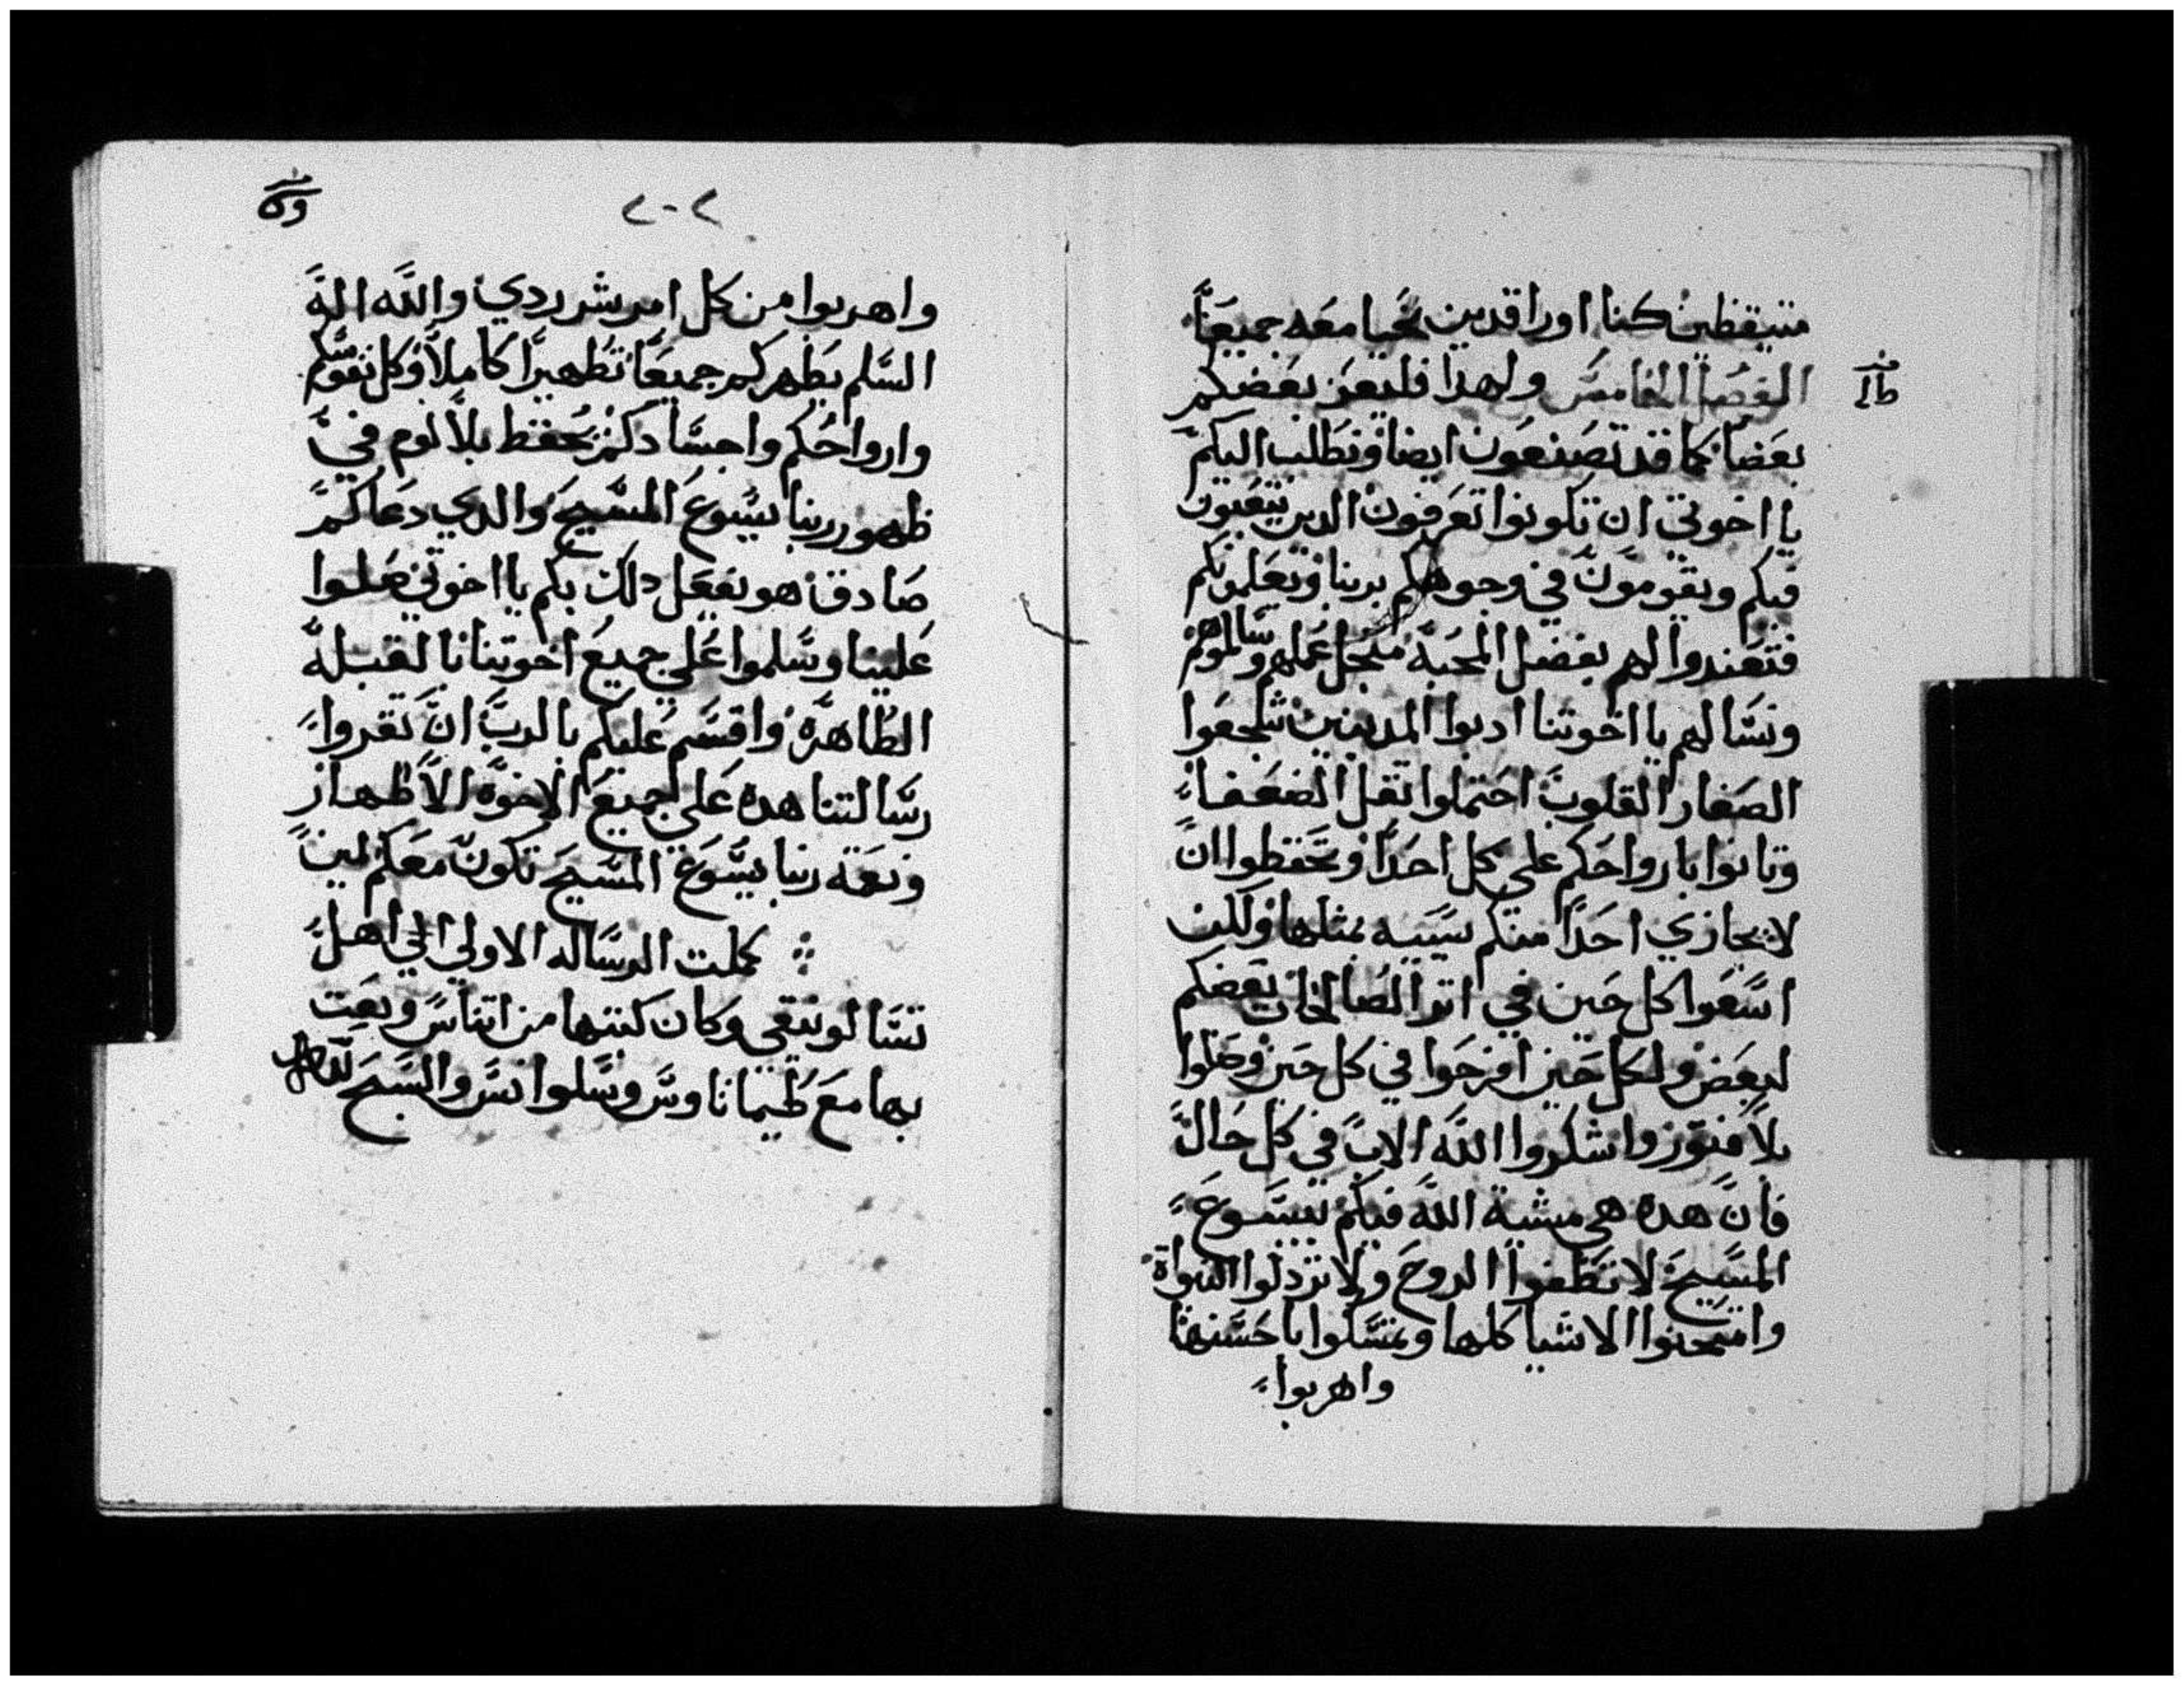 متيقظين كنا او راقدين نحيا معه جميعاً
الفصل الخامس ولهذا فليعز بعضكم
بعضاً كما قد تصنعون ايضا ونطلب اليكم
يا اخوتي ان تكونوا تعرفون الدين يتعبون
فيكم ويقومون في وجوهكم بربنا ويعلمونكم
فتعندوا لهم بفضل المحبة منجل عملهم وسالموهم
ونسالهم يا اخوتنا ادبوا المدنبين شجعوا
الصغار القلوب احتملوا تقل الضعفاء
وتانوا بارواحكم على كل احداً وتحفظوا ان
لا يجازي احداً منكم سييه بمثلها ولكن
اسعوا كل حين في اتر الصالحات بعضكم
لبعض ولكل حين افرحوا في كل حين وصلوا
بلا فتور واشكروا الله الاب في كل حال
فان هده هي مشية الله فيكم بيسوع
المسيح لا تطفوا الروح ولا تردلوا النبواة
وامتحنوا الاشيا كلها وتمسكوا باحسنها
واهربوا
٢٠٢
واهربوا من كل امر شر ردي والله اله
السلم يطهركم جميعاً تطهيراً كاملاً وكل نفوسكم
وارواحكم واجسادكم يحفظ بلا لوم في
ظهور ربنا يسوع المسيح والدي دعاكم
صادق هو يفعل دلك بكم يا اخوتي صلوا
علينا وسلموا على جميع اخوتنا بالقبله
الطاهره واقسم عليكم بالرب ان تقروا
رسالتنا هده على جميع الاخوه الاطهار
ونعمة ربنا يسوع المسيح تكون معكم امين
كملت الرساله الاولي الي اهل
تسالونيقي وكان كتبها من اتناس وبعت
بها مع طيماتاوس وسلوانس والسبح لله